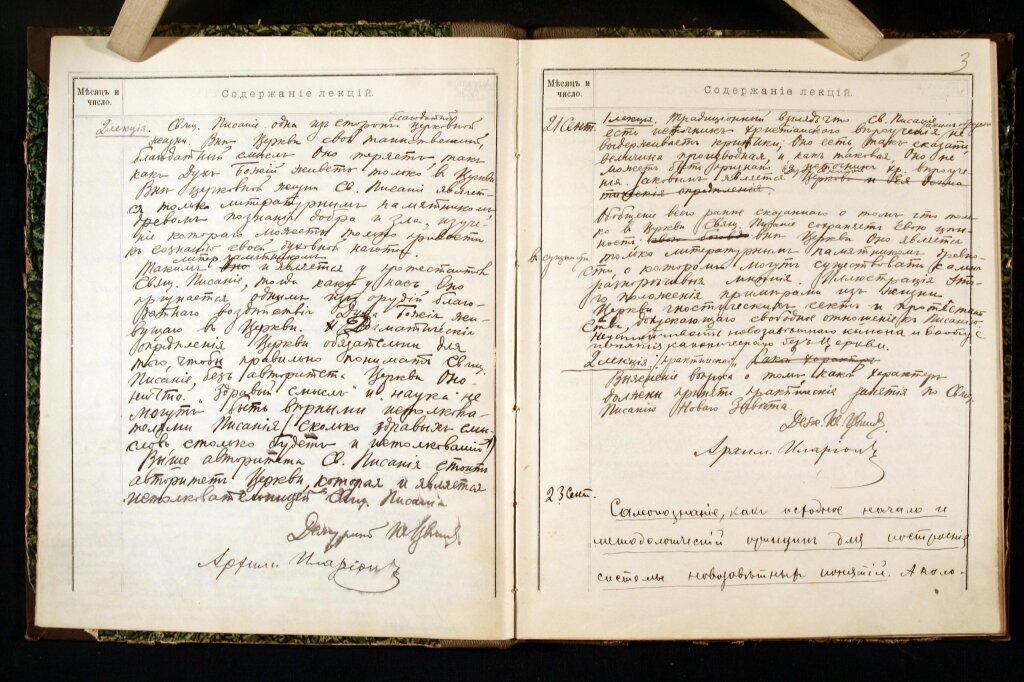 Мѣсяцъ и число.
Содержаніе лекцій.
2 лекція. Свящ. Писаніе одна изъ сторонъ благодатной церковной
жизни. Внѣ Церкви свой таинственный,
благодатный смыслъ Оно теряетъ, такъ
какъ Духъ Божій живетъ только въ Церкви.
Внѣ церковной жизни Св. Писаніе являет-
ся только литературнымъ памятникомъ,
древомъ познанія добра и зла, изуче-
ніе котораго можетъ только привести
къ сознанію своей духовной наготы.
литер. памятникомъ
Такимъ оно и является у протестантовъ
Свящ. Писаніе, тогда какъ у насъ Оно
является однимъ изъ орудій благо-
датнаго воздѣйствія Духа Божія жи-
вущаго въ Церкви. Догматическія
опредѣленія Церкви обязательны для
того, чтобы правильно понимать Свящ.
Писаніе, безъ авторитета Церкви Оно
ничто. "Здравый смыслъ" и "наука" не
могутъ быть вѣрными истолкова-
телями Писанія (сколько здравыхъ смы-
словъ столько будетъ и истолкованій!)
Выше авторитета Св. Писанія стоитъ
авторитетъ Церкви, которая и является
истолковательницей Свящ. Писанія
Дежурный
Архим. Иларіонъ
3
Мѣсяцъ и число.
Содержаніе лекцій.
21 Сент. 1 лекція. Традиціонный взглядъ, что Св. Писаніе
есть источникъ христіанскаго вѣроученія не
выдерживаетъ критики; Оно есть такъ сказать
величина производная, и какъ таковая, Оно не
можетъ быть признано за источникъ хр. вѣроуче-
нія. Таковымъ является Церковь и Ея догма-
тическія опредѣленія.
Обобщеніе всего ранѣе сказаннаго о томъ что толь-
ко въ Церкви Свящ. Писаніе сохраняетъ свою цѣн-
ность: внѣ Церкви Оно является
въ сущности только литературнымъ памятникомъ древно-
сти, о которомъ могутъ существовать самыя
разнорѣчивыя мнѣнія. Иллюстрація это-
го положенія примѣрами изъ жизни
Церкви гностическихъ сектъ и протестант-
ства, допускающаго свободное отношеніе къ Писанію.
Немыслимость новозавѣтнаго канона и вообще
понятія каноническаго безъ Церкви.
2 лекція (практическая). Какой характеръ
Выясненіе вопроса о томъ какой характеръ
должны принять практическія занятія по Свящ.
Писанію Новаго Завѣта
Деж.
Архим. Иларіонъ
23 Сент.
Самопознаніе, какъ исходное начало и
методологическій принципъ для построенія
системы новозавѣтныхъ понятій. Аполо-